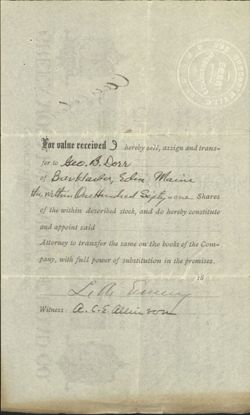 For value received I hereby sell, assign and trans-
fer to Geo. B. Dorr
of Bar Harbor, Eden, Maine
the within One Hundred Sixty-one Shares
of the within described stock, and do hereby constitute
and appoint said
Attorney to transfer the same on the books of the Com-
pany, with full power of substitution in the premises.
18
L. A. Emery
Witness: A. C. E.